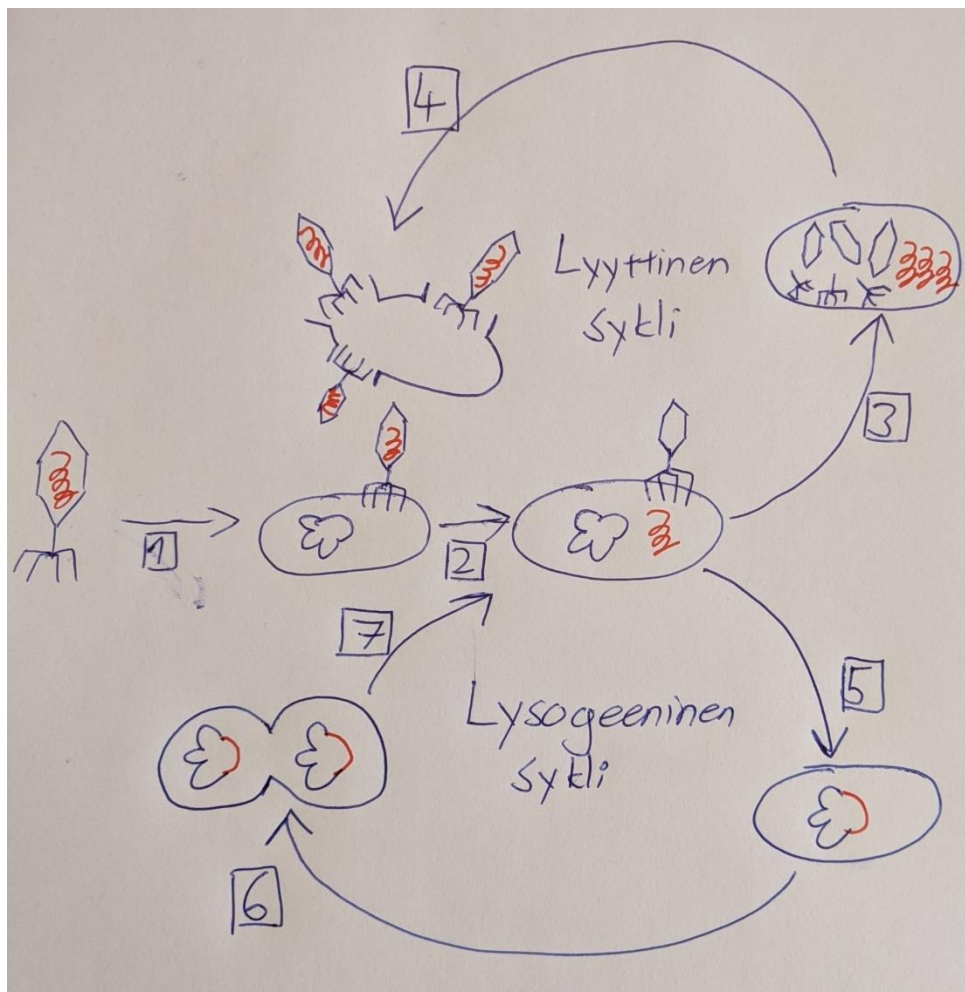 4
Lyyttinen
sykli
3
1
2
7
Lysogeeninen
sykli
5
6